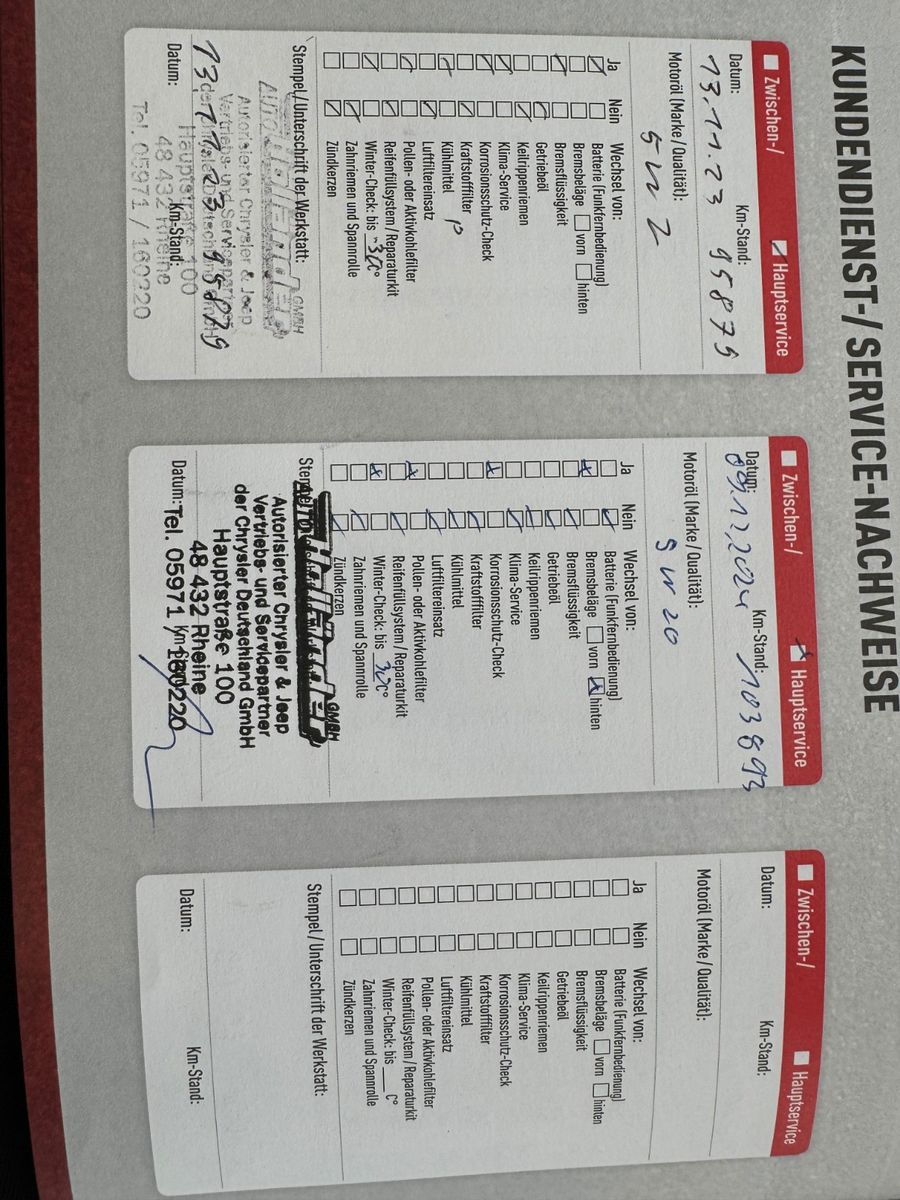 KUNDENDIENST-/ SERVICE-NACHWEISE
Zwischen-/ Hauptservice
Datum: Km-Stand:
13.11.23 95875
Motoröl (Marke/Qualität):
Ja Nein Wechsel von:
Batterie (Funkfernbedienung)
Bremsbeläge vorn hinten
Bremsflüssigkeit
Getriebeöl
Keilrippenriemen
Klima-Service
Korrosionsschutz-Check
Kraftstofffilter
Kühlmittel
Luftfiltereinsatz
Pollen- oder Aktivkohlefilter
Reifenfüllsystem/Reparaturkit
Winter-Check: bis -30C°
Zahnriemen und Spannrolle
Zündkerzen
Stempel/Unterschrift der Werkstatt:
GMBH
Autorisierter Chrysler & Jeep
Vertriebs- und Servicepartner
Hauptstraße 100
48 432 Rheine
Tel. 05971 / 160220
Datum: Km-Stand:
13.11.23 95875
Zwischen-/ Hauptservice
Datum: Km-Stand:
09.12.2024 103893
Motoröl (Marke/Qualität):
5W20
Ja Nein Wechsel von:
Batterie (Funkfernbedienung)
Bremsbeläge vorn hinten
Bremsflüssigkeit
Getriebeöl
Keilrippenriemen
Klima-Service
Korrosionsschutz-Check
Kraftstofffilter
Kühlmittel
Luftfiltereinsatz
Pollen- oder Aktivkohlefilter
Reifenfüllsystem/Reparaturkit
Winter-Check: bis C°
Zahnriemen und Spannrolle
Zündkerzen
AUTO GMBH
Autorisierter Chrysler & Jeep
Vertriebs- und Servicepartner
der Chrysler Deutschland GmbH
Hauptstraße 100
48 432 Rheine
Datum: Tel. 05971 160220
Zwischen-/ Hauptservice
Datum: Km-Stand:
Motoröl (Marke/Qualität):
Ja Nein Wechsel von:
Batterie (Funkfernbedienung)
Bremsbeläge vorn hinten
Bremsflüssigkeit
Getriebeöl
Keilrippenriemen
Klima-Service
Korrosionsschutz-Check
Kraftstofffilter
Kühlmittel
Luftfiltereinsatz
Pollen- oder Aktivkohlefilter
Reifenfüllsystem/Reparaturkit
Winter-Check: bis ___ C°
Zahnriemen und Spannrolle
Zündkerzen
Stempel/Unterschrift der Werkstatt:
Datum: Km-Stand: